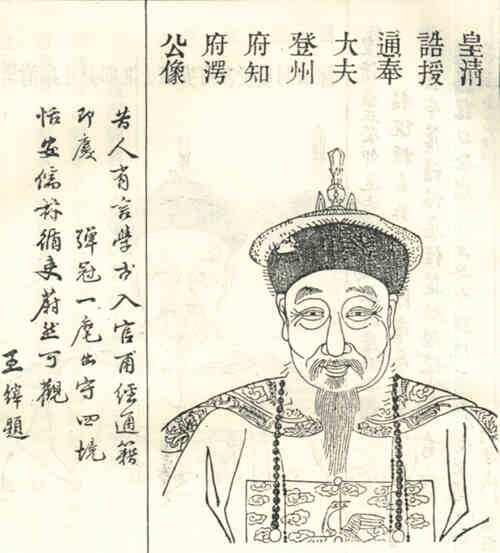 皇清
誥授
通奉
大夫
登州
府知
府
公像
昔人有言學古入官甫經通籍
即慶 彈冠一麾出守四境
恬安儒循吏蔚然可觀
王題